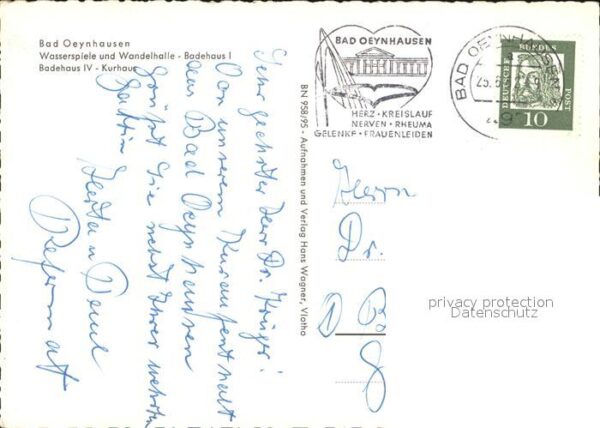 Bad Oeynhausen
Wasserspiele und Wandelhalle - Badehaus I
Badehaus IV - Kurhaus
BAD OEYNHAUSEN
HERZ · KREISLAUF
NERVEN · RHEUMA
GELENKE · FRAUENLEIDEN
BAD OEYNHAUSEN
DEUTSCHE
BUNDES
POST
10
BN 958/95 - Aufnahmen und Verlag Hans Wagner, Vlotho
Sehr geehrter Herr Dr. Krüger!
Von unserem Kuraufenthalt
aus Bad Oeynhausen
grüßt Sie nebst Ihrer werten
Gattin
Herrn
Dr.
privacy protection
Datenschutz